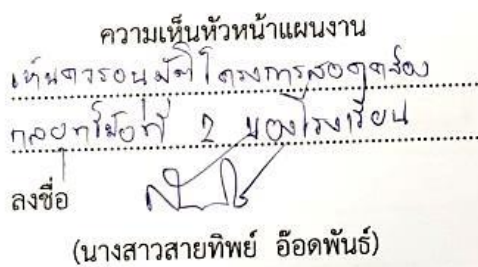 ความเห็นหัวหน้าแผนงาน
เห็นควรอนุมัติโครงการสอดคล้อง
กลยุทธ์ข้อที่ 2 ของโรงเรียน
ลงชื่อ
(นางสาวสายทิพย์ อ๊อดพันธ์)